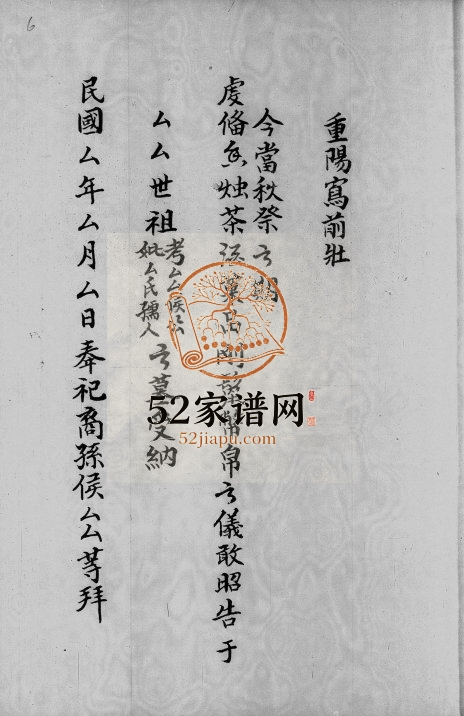 6
重陽寫前壯
今當秋祭之期
虔俻香烛茶 菓品剛鬣 帛之儀敢昭告于
厶厶世祖
考厶厶侯公
妣厶氏孺人
之墓 受納
民國厶年厶月厶日奉祀裔孫侯厶厶等拜
52家谱网
52jiapu.com